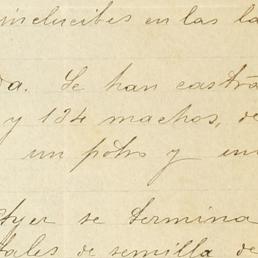 en las la
da. Se han castra
y 134 machos, de
un potro y un
Ayer se termina
tales de semilla de